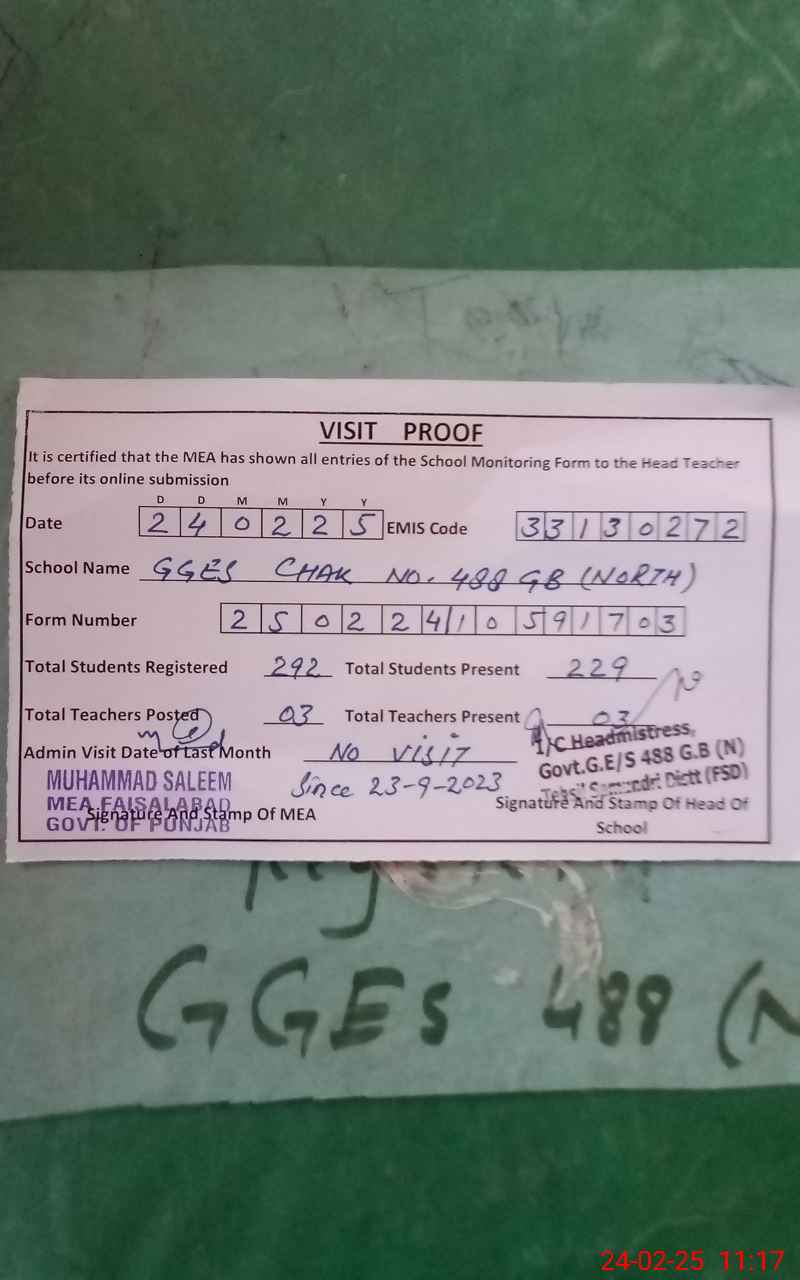 VISIT PROOF
It is certified that the MEA has shown all entries of the School Monitoring Form to the Head Teacher
before its online submission
D D M M Y Y
Date 2 4 0 2 2 5 EMIS Code 3 3 1 3 0 2 7 2
School Name GGES CHAK NO. 488 GB (NORTH)
Form Number 2 5 0 2 2 4 1 0 5 9 1 7 0 3
Total Students Registered 292 Total Students Present 229
Total Teachers Posted 03 Total Teachers Present 03
Admin Visit Date of Last Month NO VISIT
Since 23-9-2023
MUHAMMAD SALEEM
MEA FAISALABAD
GOVT. OF PUNJAB
Signature And Stamp Of MEA
I/C Headmistress,
Govt.G.E/S 488 G.B (N)
Tehsil Samundri Dictt (FSD)
Signature And Stamp Of Head Of
School
GGES 488 (N
24-02-25 11:17